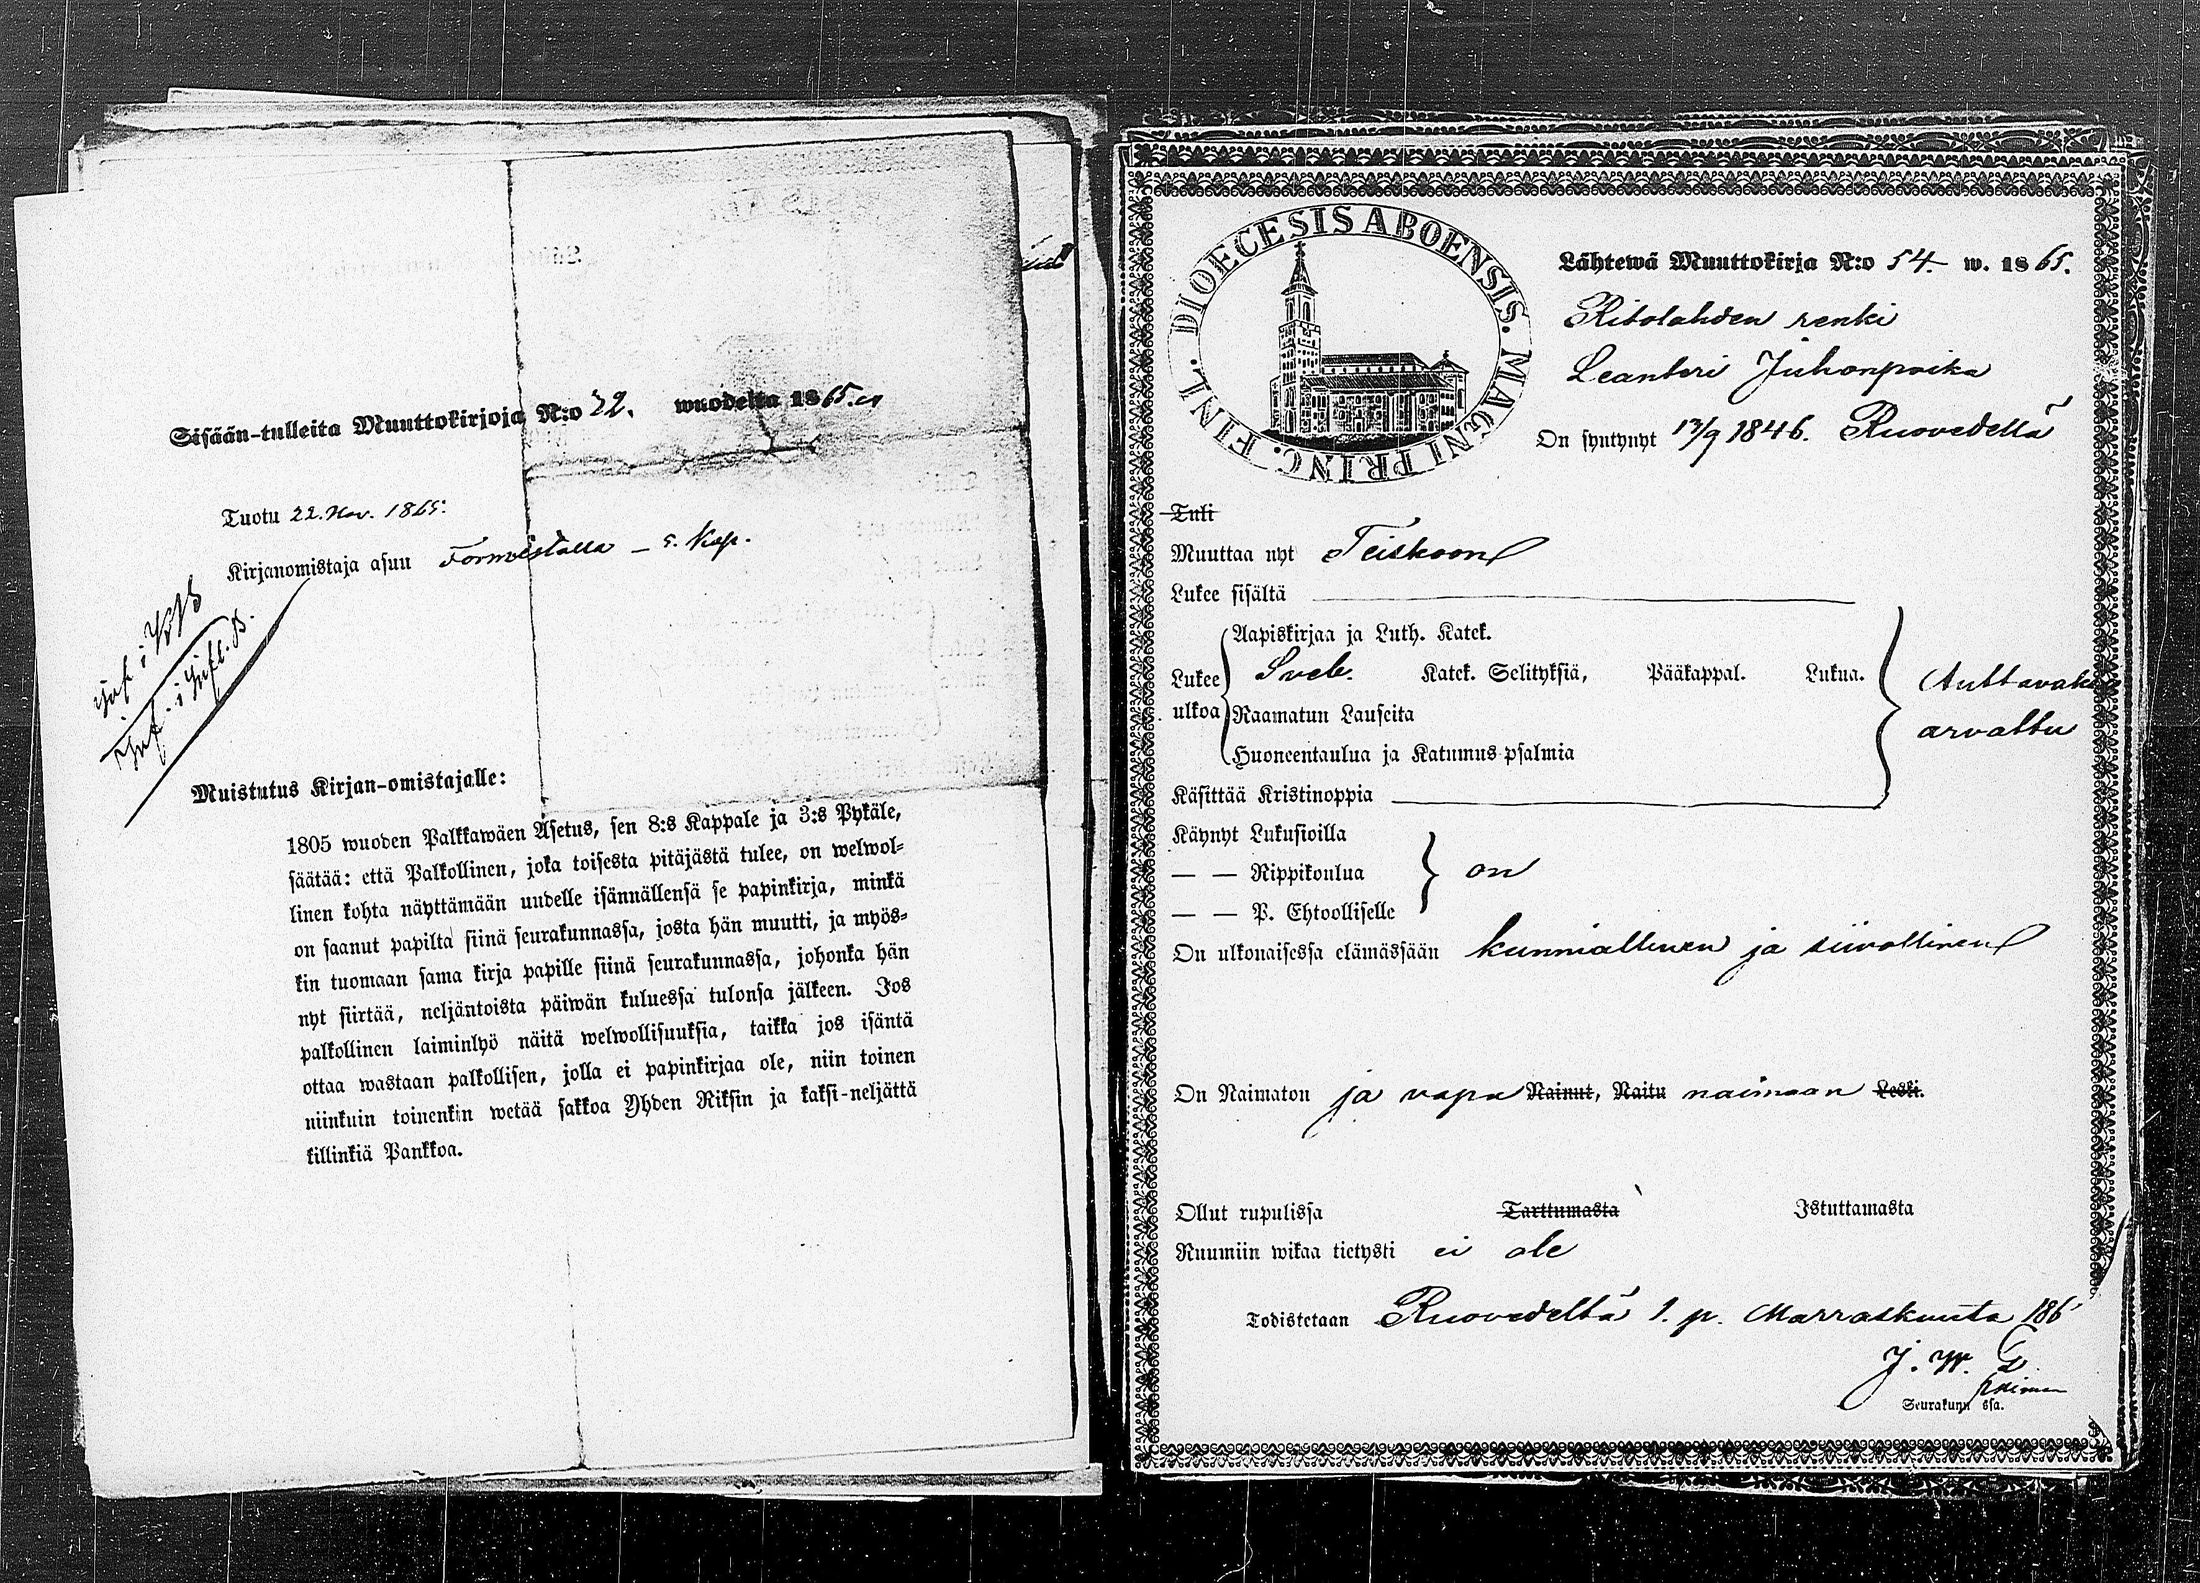 Sisään-tulleita Muuttokirjoja N:o 22. wuodelta 1865.
Tuotu 22. Nov. 1865.
Kirjanomistaja asuu
Muistutus Kirjan-omistajalle:
1805 wuoden Palkkawäen Asetus, sen 8:s Kappale ja 3:s Pykäle,
säätää: että Palkollinen, joka toisesta pitäjästä tulee, on welwol=
linen kohta näyttämään uudelle isännällensä se papinkirja, minkä
on saanut papilta siinä seurakunnassa, josta hän muutti, ja myös=
kin tuomaan sama kirja papille siinä seurakunnassa, johonka hän
nyt siirtää, neljäntoista päiwän kuluessa tulonsa jälkeen. Jos
palkollinen laiminlyö näitä welwollisuuksia, taikka jos isäntä
ottaa wastaan palkollisen, jolla ei papinkirjaa ole, niin toinen
niinkuin toinenkin wetää sakkoa Yhden Riksin ja kaksi-neljättä
killinkiä Pankkoa.
DIOECESIS ABOENSIS. MAGNI PRINC. FINL.
Lähtewä Muuttokirja N:o 54. w. 1865.
Ritolahden renki
Leanteri Juhonpoika
On syntynyt 13/9 1846. Ruovedellä
Tuli
Muuttaa nyt Teiskoon
Lukee sisältä
Aapiskirjaa ja Luth. Katek.
Lukee ulkoa Sveb. Katek. Selityksiä, Pääkappal. Lukua.
Raamatun Lauseita
Huoneentaulua ja Katumus-psalmia
Auttavaksi
arvattu
Käsittää Kristinoppia
Käynyt Lukusioilla
— — Rippikoulua on
— — P. Ehtoolliselle
On ulkonaisessa elämässään kunniallinen ja siivollinen
On Naimaton ja vapa Nainut, Naitu naimaan Leski.
Ollut rupulissa Tarttumasta Istuttamasta
Ruumiin wikaa tietysti ei ole
Todistetaan Ruovedeltä 1. p. Marraskuuta 186
J. W. G
Seurakunnassa.